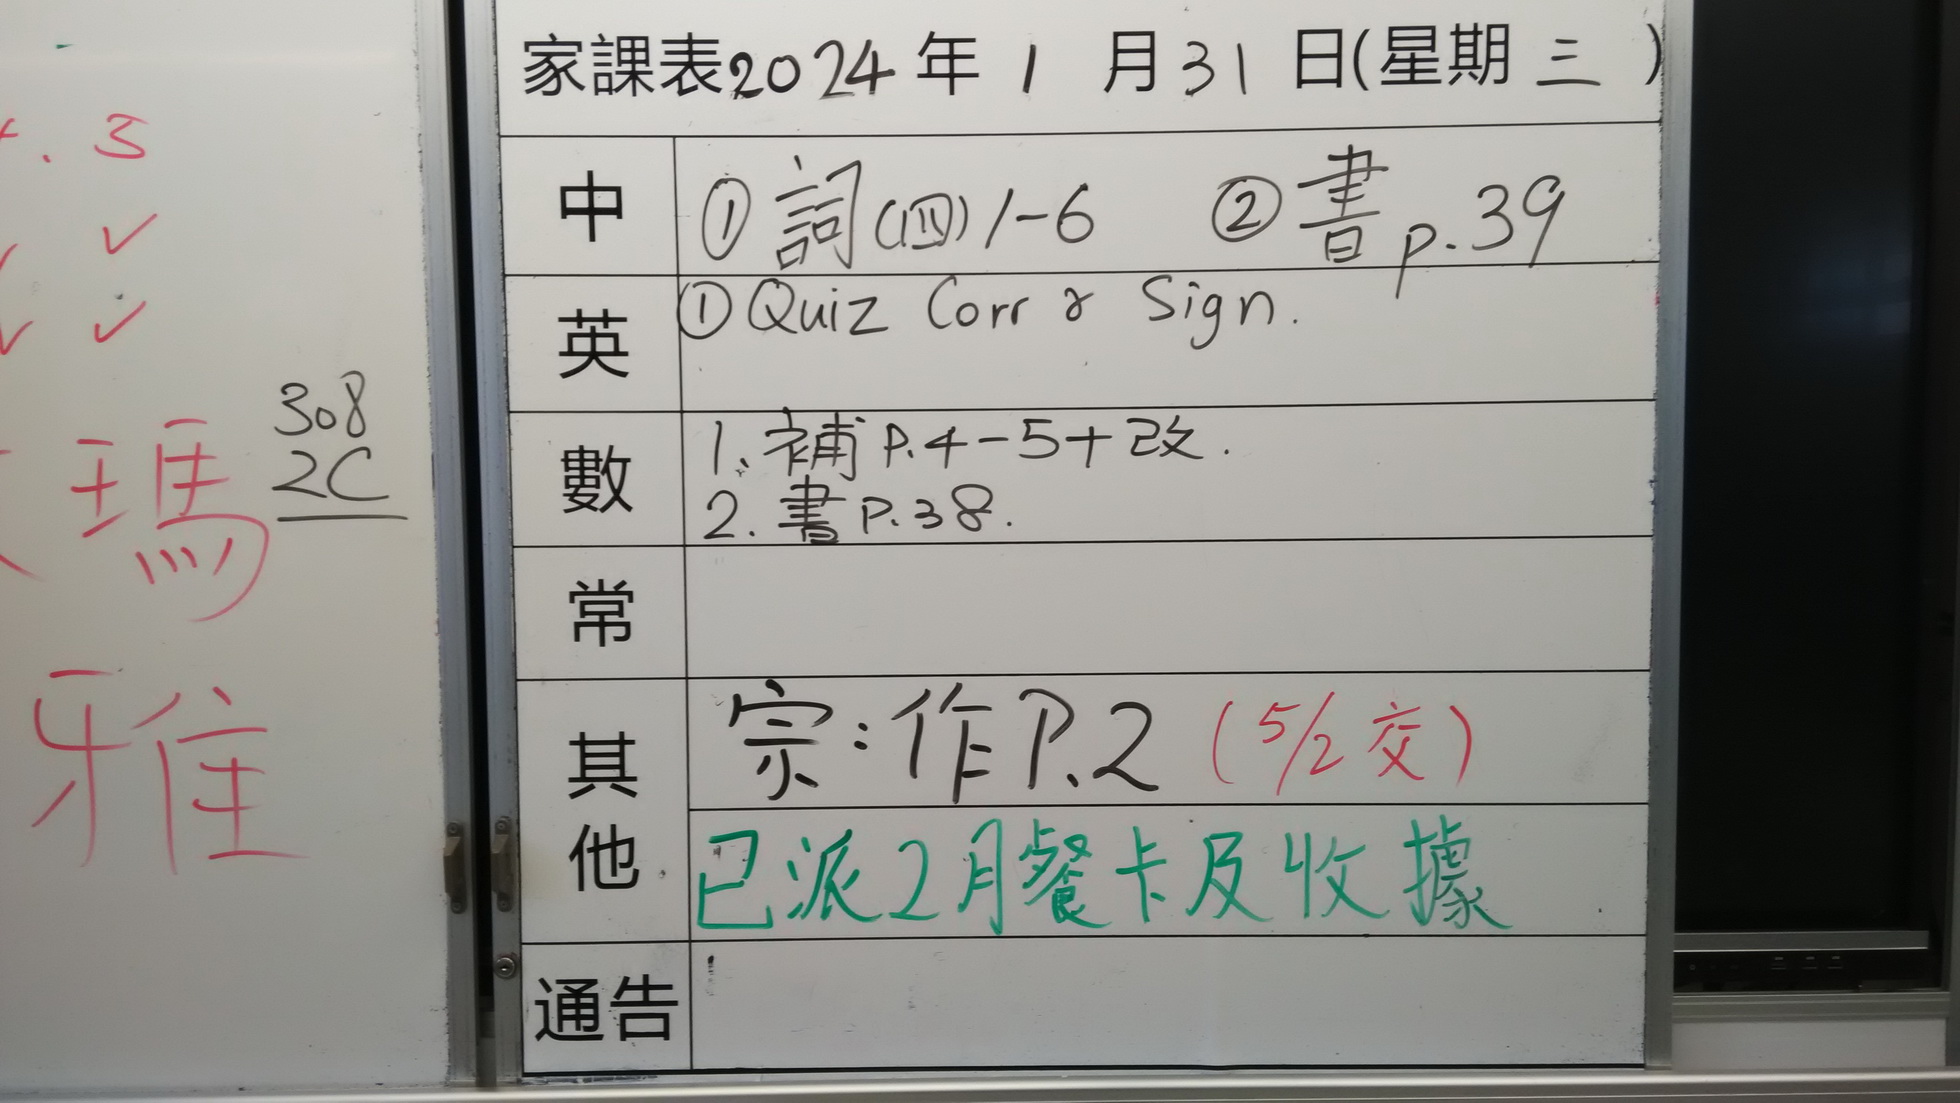 家課表2024年1月31日(星期三)
中 ①詞(四)1-6 ②書p.39
英 ①Quiz Corr & Sign.
數 1.補P.4-5+改.
2.書P.38.
常
其他 宗:作P.2 (5/2交)
已派2月餐卡及收據
通告
. 3
308
2C
瑪
雅